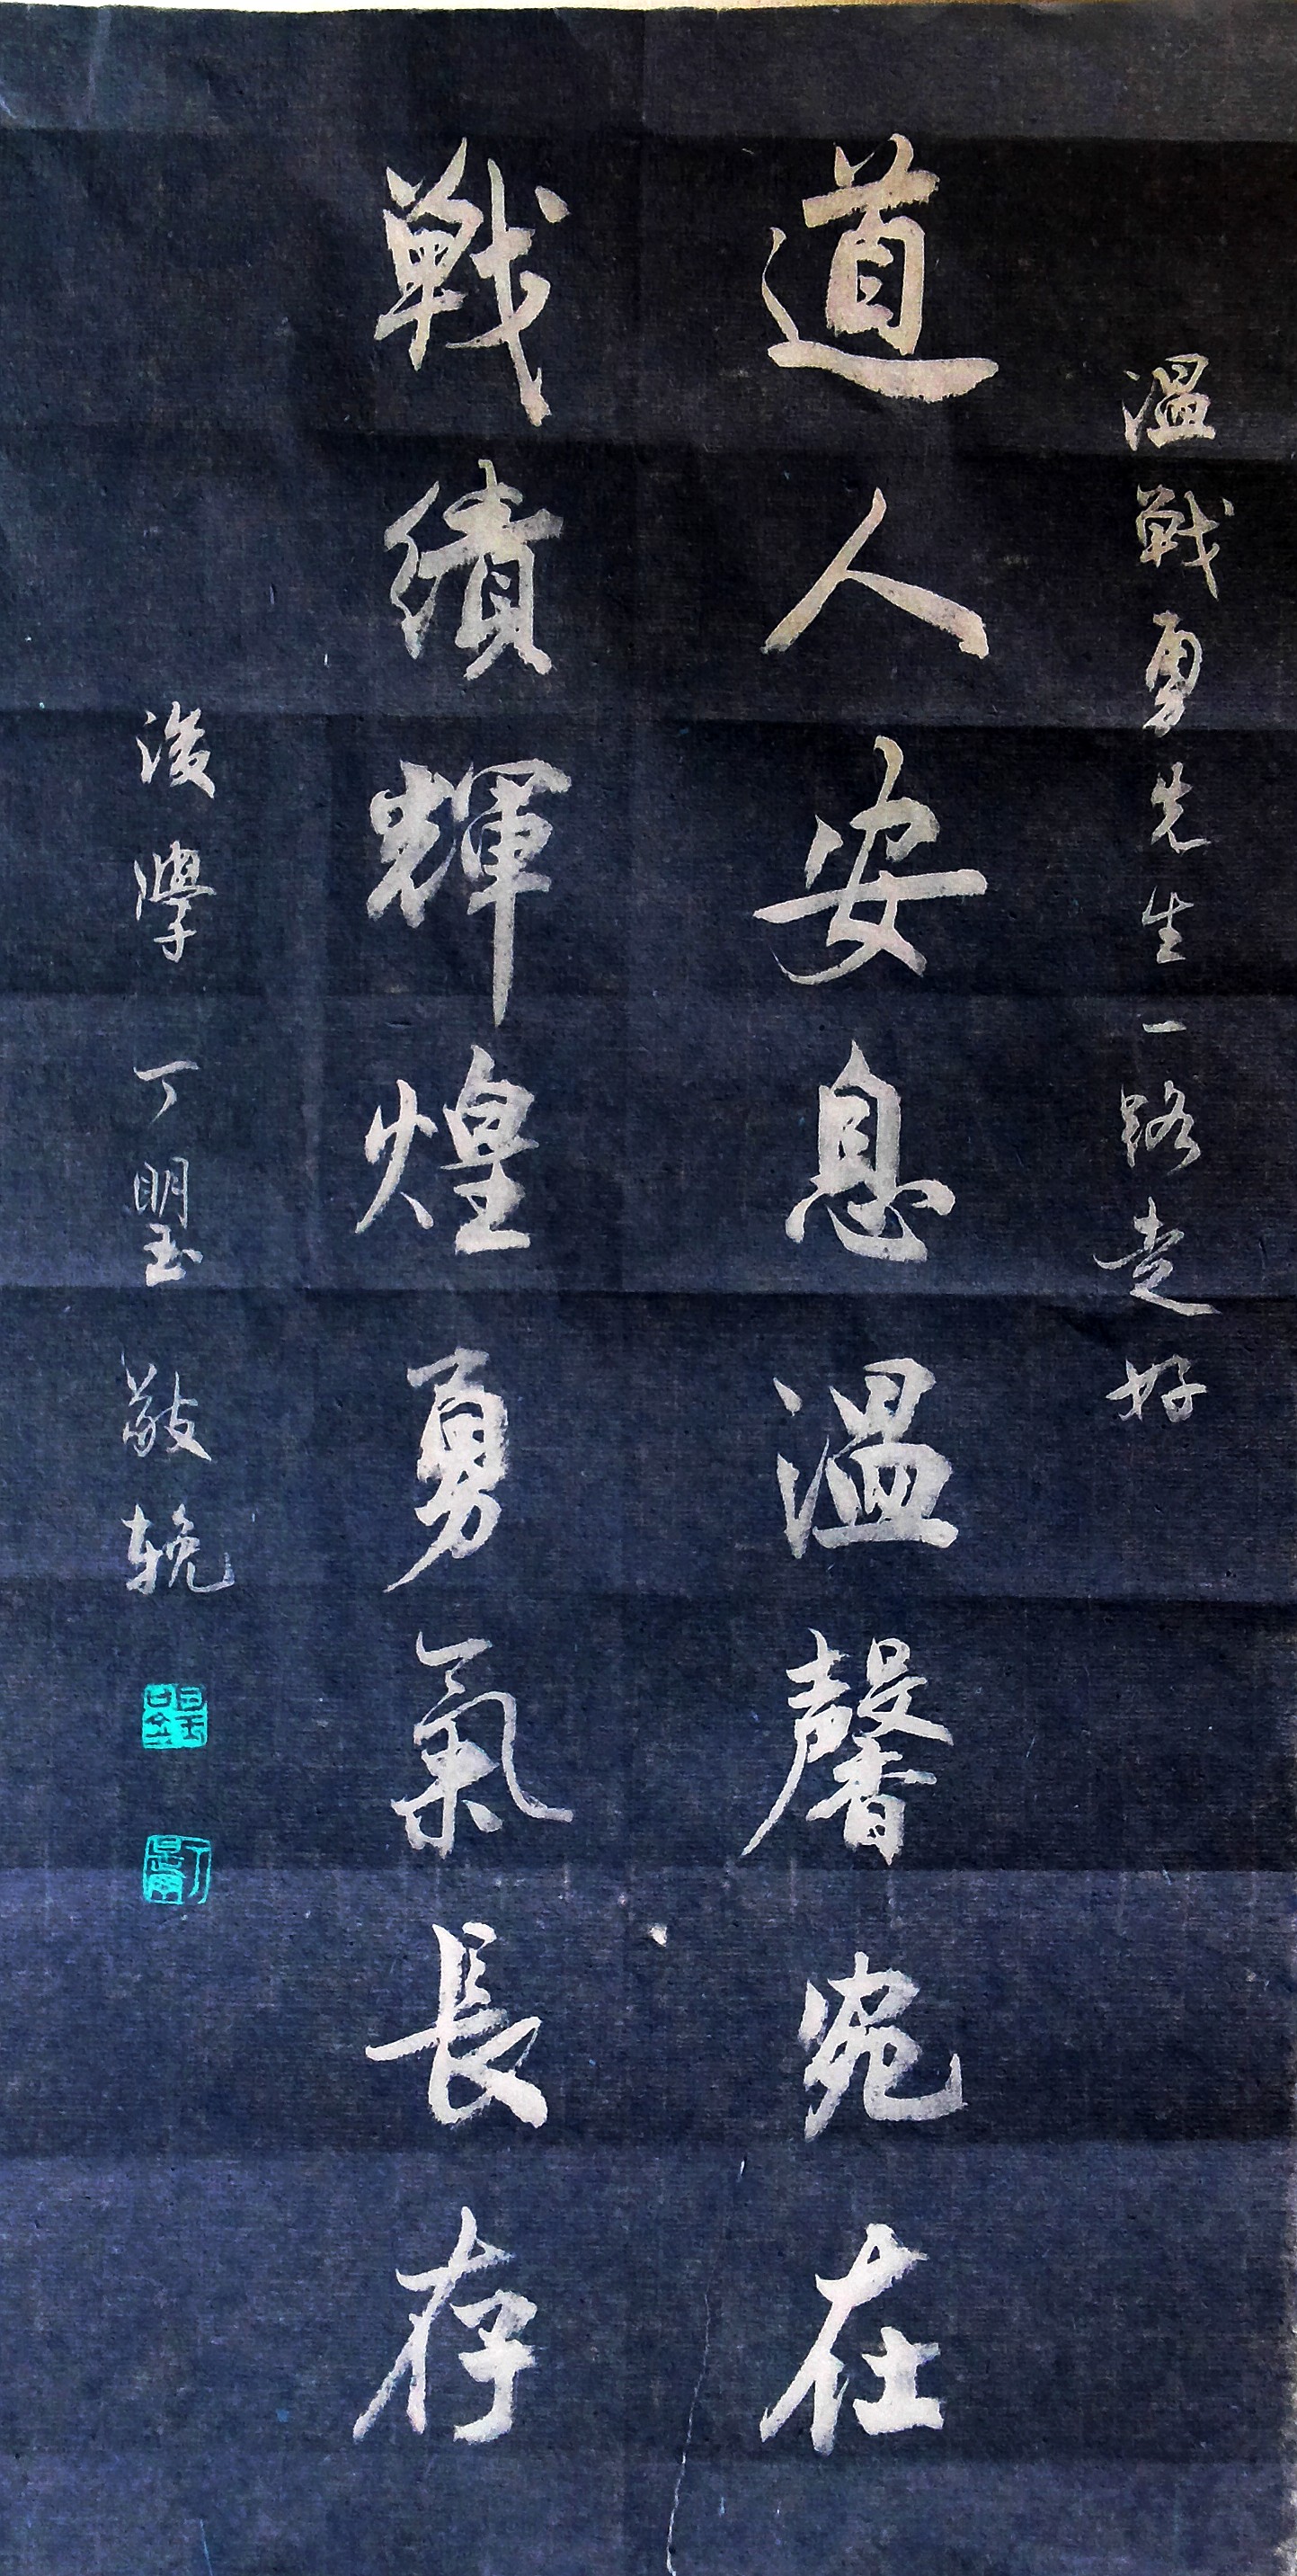 溫戰勇先生一路走好
道人安息溫馨宛在
戰績輝煌勇氣長存
後學 丁曌 敬輓